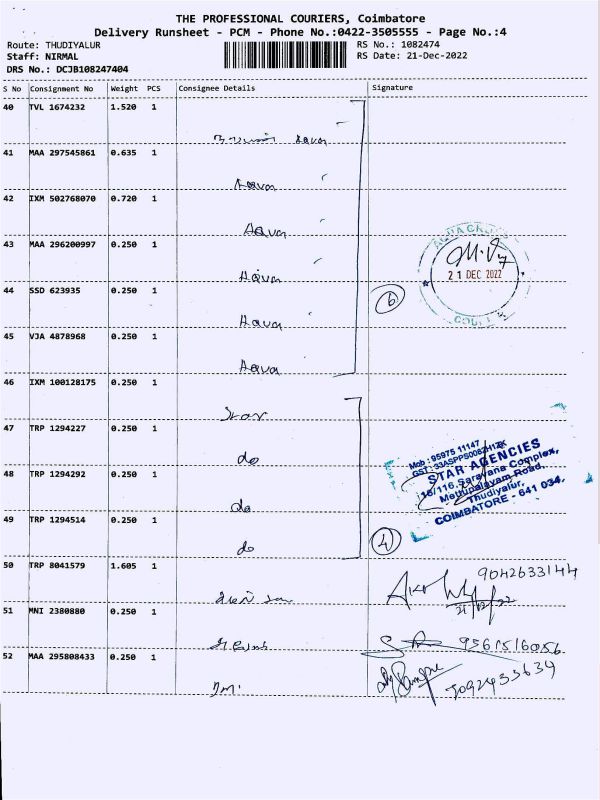 THE PROFESSIONAL COURIERS, Coimbatore
Delivery Runsheet - PCM - Phone No.:0422-3505555 - Page No.:4
Route: THUDIYALUR
RS No.: 1082474
Staff: NIRMAL
RS Date: 21-Dec-2022
DRS No.: DCJB108247404
S No Consignment No Weight PCS Consignee Details Signature
40 TVL 1674232 1.520 1
41 MAA 297545861 0.635 1
Aqua
42 IXM 502768070 0.720 1
Aqua
43 MAA 296200997 0.250 1
Aqua
21 DEC 2022
44 SSD 623935 0.250 1
6
Aqua
45 VJA 4878968 0.250 1
Aqua
46 IXM 100128175 0.250 1
Star
47 TRP 1294227 0.250 1
do
Mob : 95975 11147
STAR AGENCIES
15/116, Saravana Complex,
Mettupalayam Road,
Thudiyalur,
COIMBATORE - 641 034.
48 TRP 1294292 0.250 1
do
49 TRP 1294514 0.250 1
do
4
50 TRP 8041579 1.605 1
9042633144
21/12/22
51 MNI 2380880 0.250 1
52 MAA 295808433 0.250 1